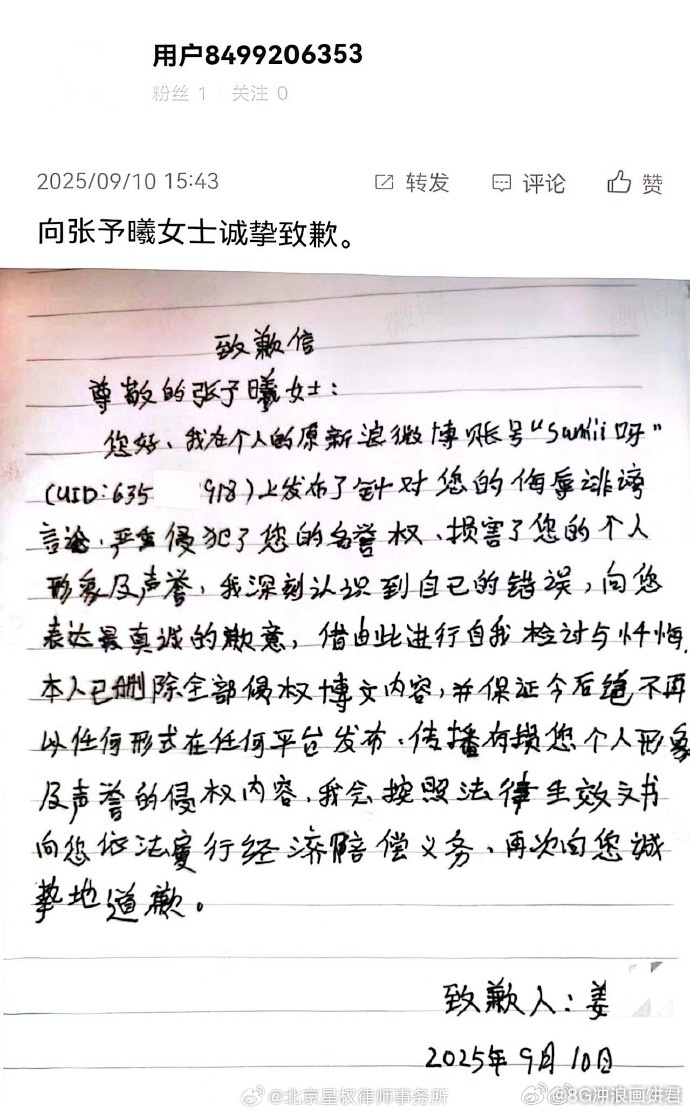 用户8499206353
粉丝 1 关注 0
2025/09/10 15:43 转发 评论 赞
向张予曦女士诚挚致歉。
致歉信
尊敬的张予曦女士:
您好、我在个人的原新浪微博账号“Sunkii呀”
(UID:635 918)上发布了针对您的侮辱诽谤
言论、严重侵犯了您的名誉权、损害了您的个人
形象及声誉,我深刻认识到自己的错误,向您
表达最真诚的歉意,借由此进行自我检讨与忏悔,
本人已删除全部侵权博文内容,并保证今后绝不再
以任何形式在任何平台发布、传播有损您个人形象
及声誉的侵权内容、我会按照法律生效文书
向您依法履行经济赔偿义务、再次向您诚
挚地道歉。
致歉人:姜
2025年9月10日
@北京星权律师事务所
@8G冲浪画饼君